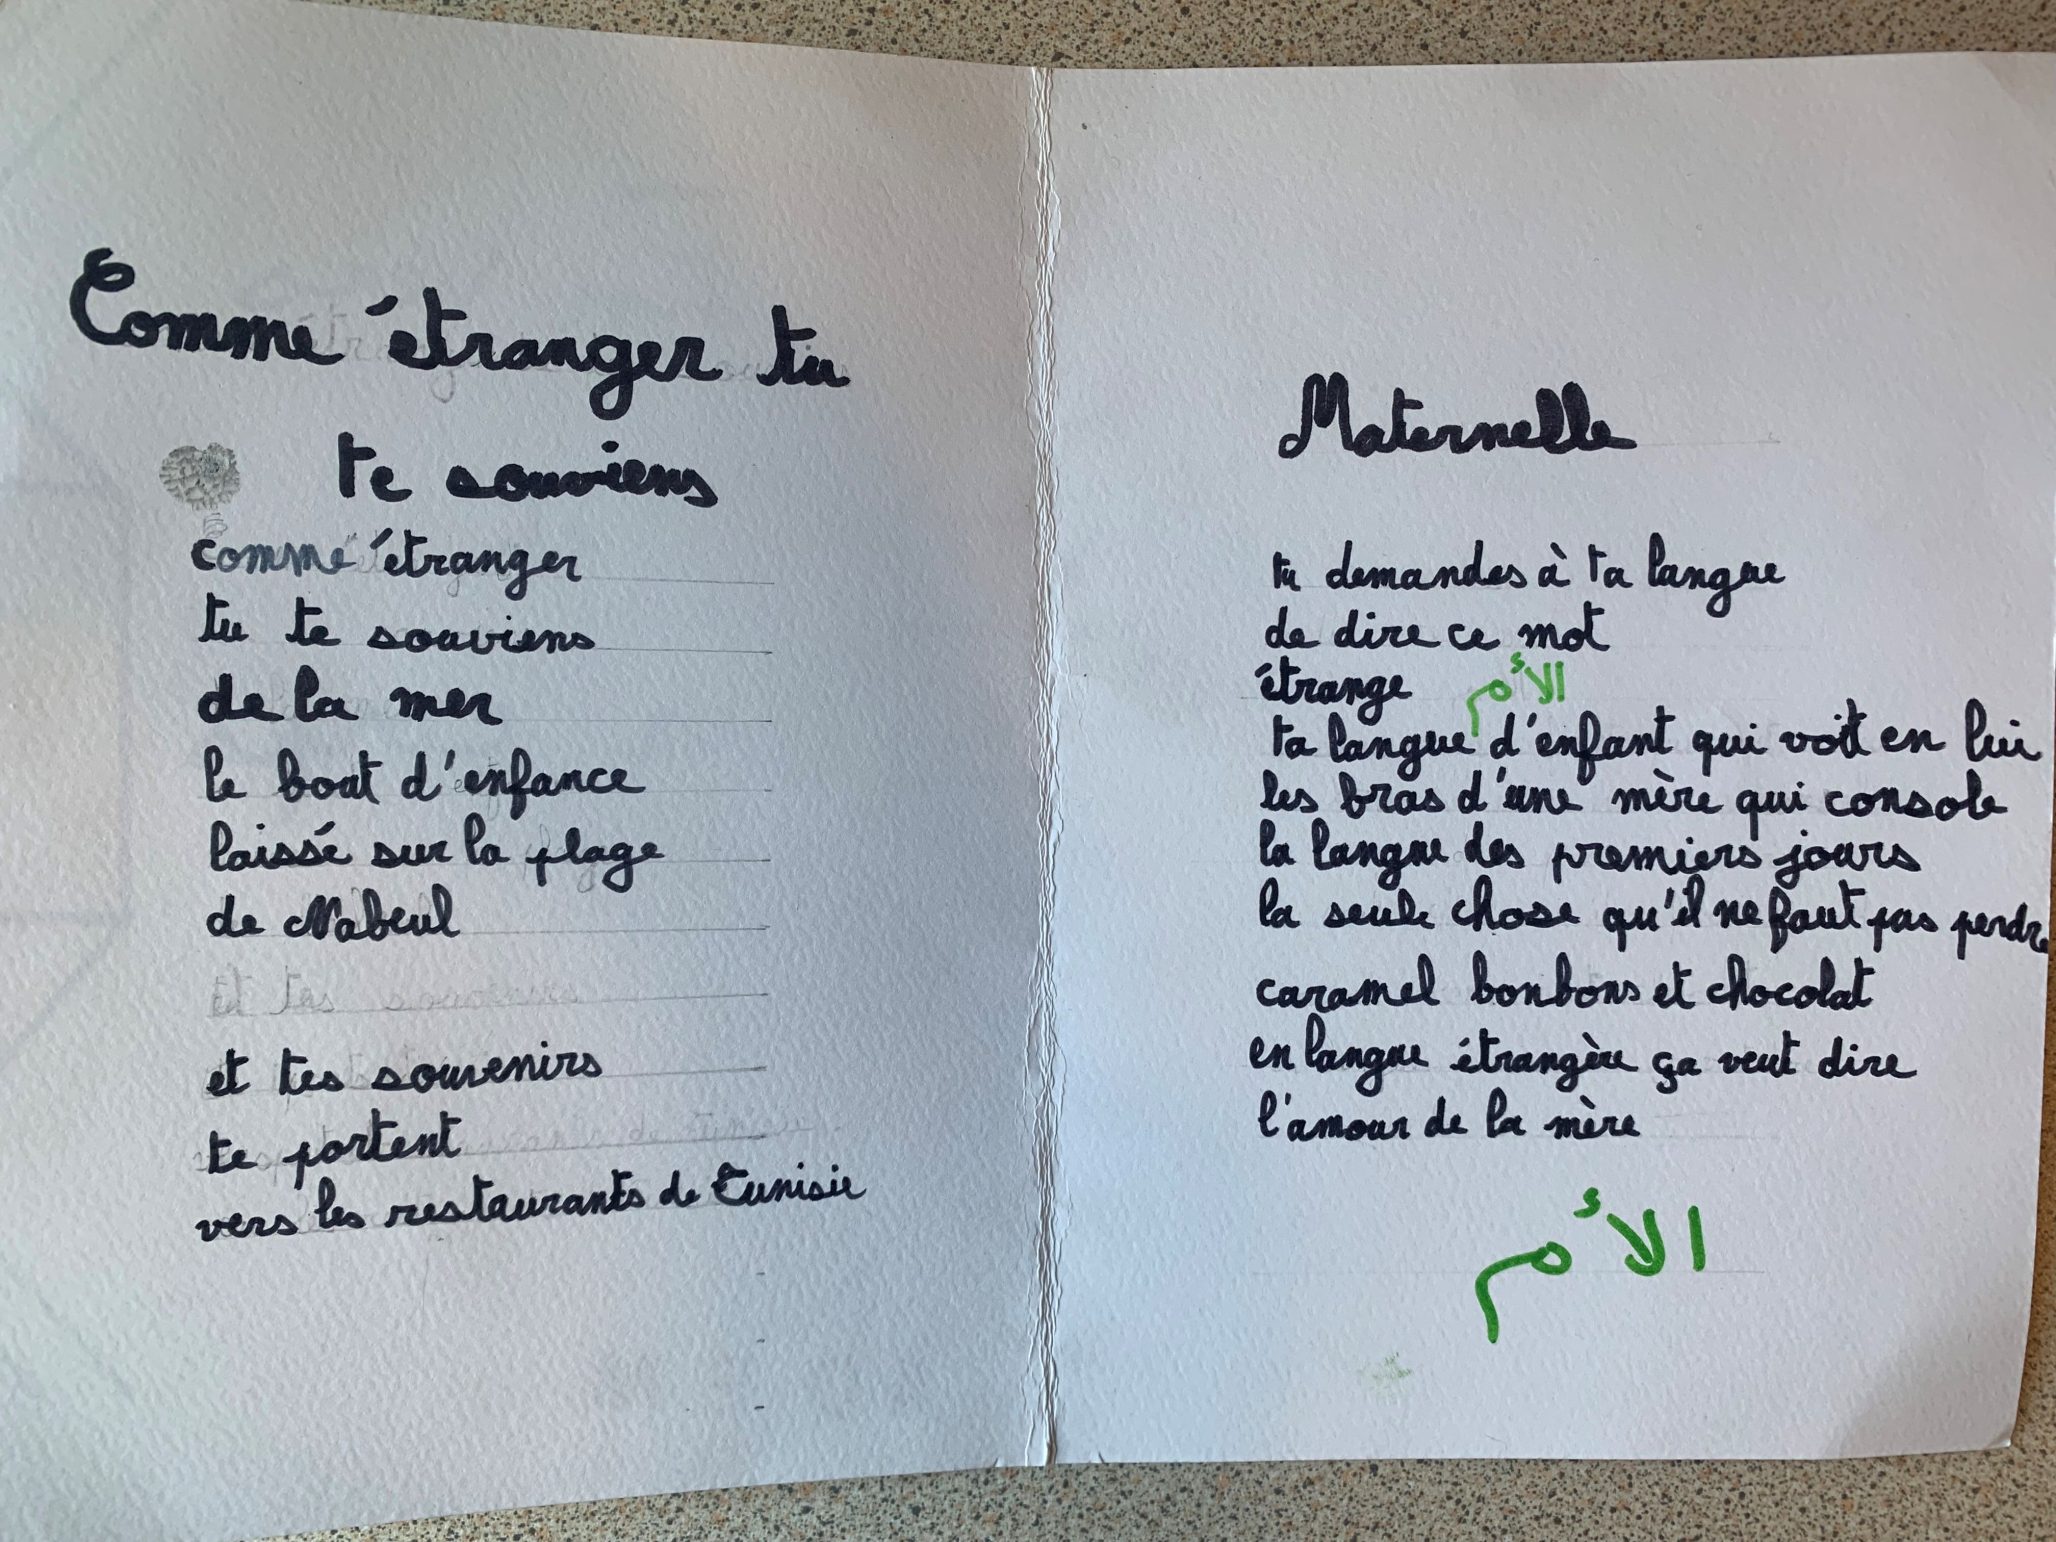 Comme étranger tu
te souviens
comme étranger
tu te souviens
de la mer
le bout d'enfance
laissé sur la plage
de Nabeul
et tes souvenirs
te portent
vers les restaurants de Tunisie
Maternelle
tu demandes à ta langue
de dire ce mot
étrange الأم
ta langue d'enfant qui voit en lui
les bras d'une mère qui console
la langue des premiers jours
la seule chose qu'il ne faut pas perdre
caramel bonbons et chocolat
en langue étrangère ça veut dire
l'amour de la mère
الأم